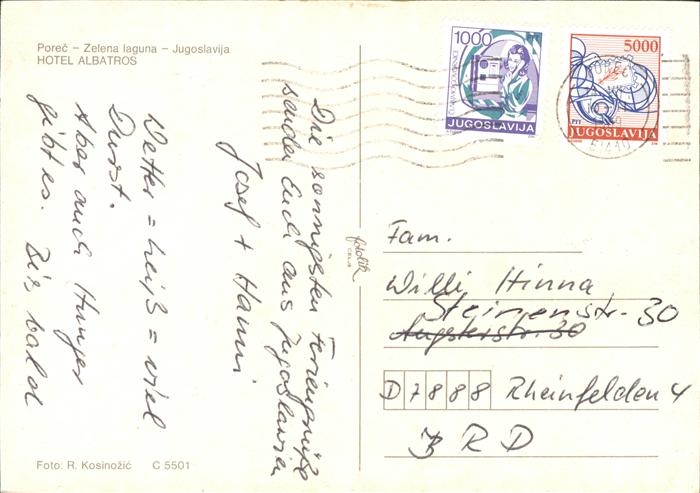 Poreč – Zelena laguna – Jugoslavija
HOTEL ALBATROS
1000
JUGOSLAVIJA
5000
PTT
JUGOSLAVIJA
51440
Die sonnigsten Feriengrüße
sendet Euch aus Jugoslawien
Josef + Hanni
Wetter = heiß = viel
Durst.
Aber auch Hunger
gibt es. Bis bald
fotolik
CELJE
Fam.
Willi Hinna
Steinenstr. 30
Augsterstr. 30
D 7888 Rheinfelden 4
BRD
Foto: R. Kosinožić C 5501